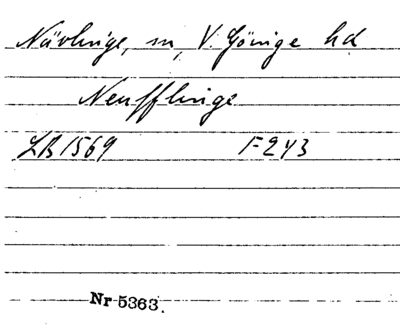 Nävlinge, sn, V. Göinge hd
Neufflinge
LB 1569 F 243
Nr 5363.